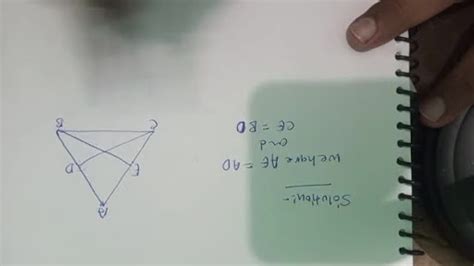 Solution:-
we have AE = AD
and
CE = BD
A
E D
C B